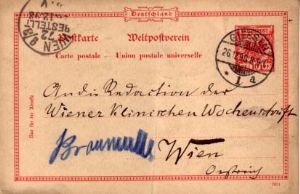 Deutschland
Postkarte Weltpostverein
Carte postale — Union postale universelle
BESTELLT
An die Redaction der
Wiener Klinischen Wochenschrift
Braumüller
Wien
Oestreich